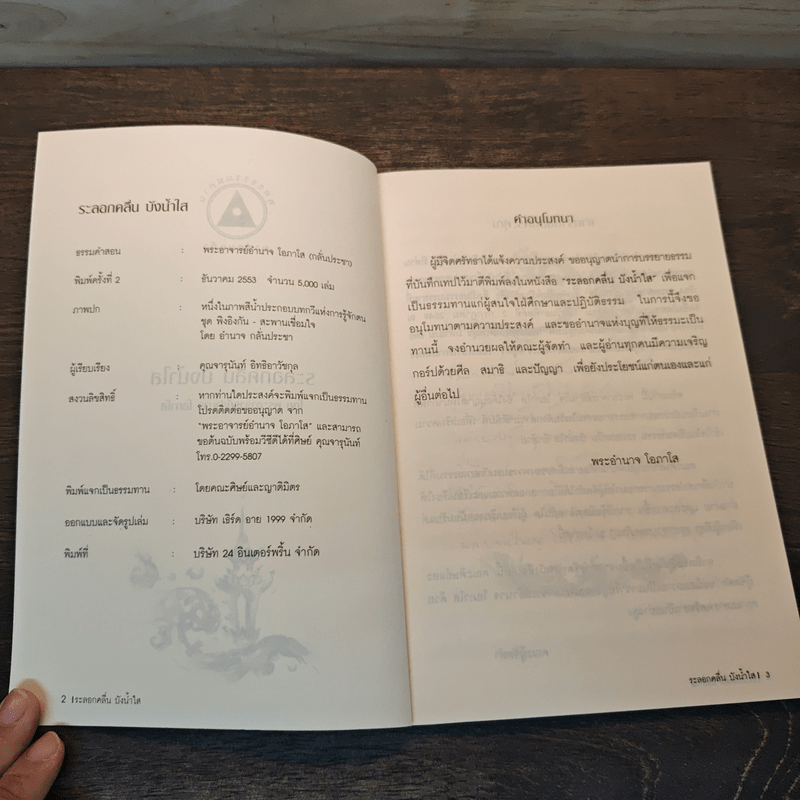 ระลอกคลื่น บังน้ำใส
ธรรมคำสอน : พระอาจารย์อำนาจ โอภาโส (กลั่นประชา)
พิมพ์ครั้งที่ 2 : ธันวาคม 2553 จำนวน 5,000 เล่ม
ภาพปก : หนึ่งในภาพสีน้ำประกอบบทกวีแห่งการรู้จักตน
ชุด พิงอิงกัน - สะพานเชื่อมใจ
โดย อำนาจ กลั่นประชา
ผู้เรียบเรียง : คุณจารุนันท์ อิทธิอาวัชกุล
สงวนลิขสิทธิ์ : หากท่านใดประสงค์จะพิมพ์แจกเป็นธรรมทาน
โปรดติดต่อขออนุญาต จาก
"พระอาจารย์อำนาจ โอภาโส" และสามารถ
ขอต้นฉบับพร้อมวีซีดีได้ที่ศิษย์ คุณจารุนันท์
โทร.0-2299-5807
พิมพ์แจกเป็นธรรมทาน : โดยคณะศิษย์และญาติมิตร
ออกแบบและจัดรูปเล่ม : บริษัท เฮิร์ด อาย 1999 จำกัด
พิมพ์ที่ : บริษัท 24 อินเตอร์พริ้น จำกัด
2 |ระลอกคลื่น บังน้ำใส
คำอนุโมทนา
ผู้มีจิตศรัทธาได้แจ้งความประสงค์ ขออนุญาตนำการบรรยายธรรม
ที่บันทึกเทปไว้มาตีพิมพ์ลงในหนังสือ "ระลอกคลื่น บังน้ำใส" เพื่อแจก
เป็นธรรมทานแก่ผู้สนใจใฝ่ศึกษาและปฏิบัติธรรม ในการนี้จึงขอ
อนุโมทนาตามความประสงค์ และขออำนาจแห่งบุญที่ให้ธรรมะเป็น
ทานนี้ จงอำนวยผลให้คณะผู้จัดทำ และผู้อ่านทุกคนมีความเจริญ
กอร์ปด้วยศีล สมาธิ และปัญญา เพื่อยังประโยชน์แก่ตนเองและแก่
ผู้อื่นต่อไป
พระอำนาจ โอภาโส
ระลอกคลื่น บังน้ำใส| 3